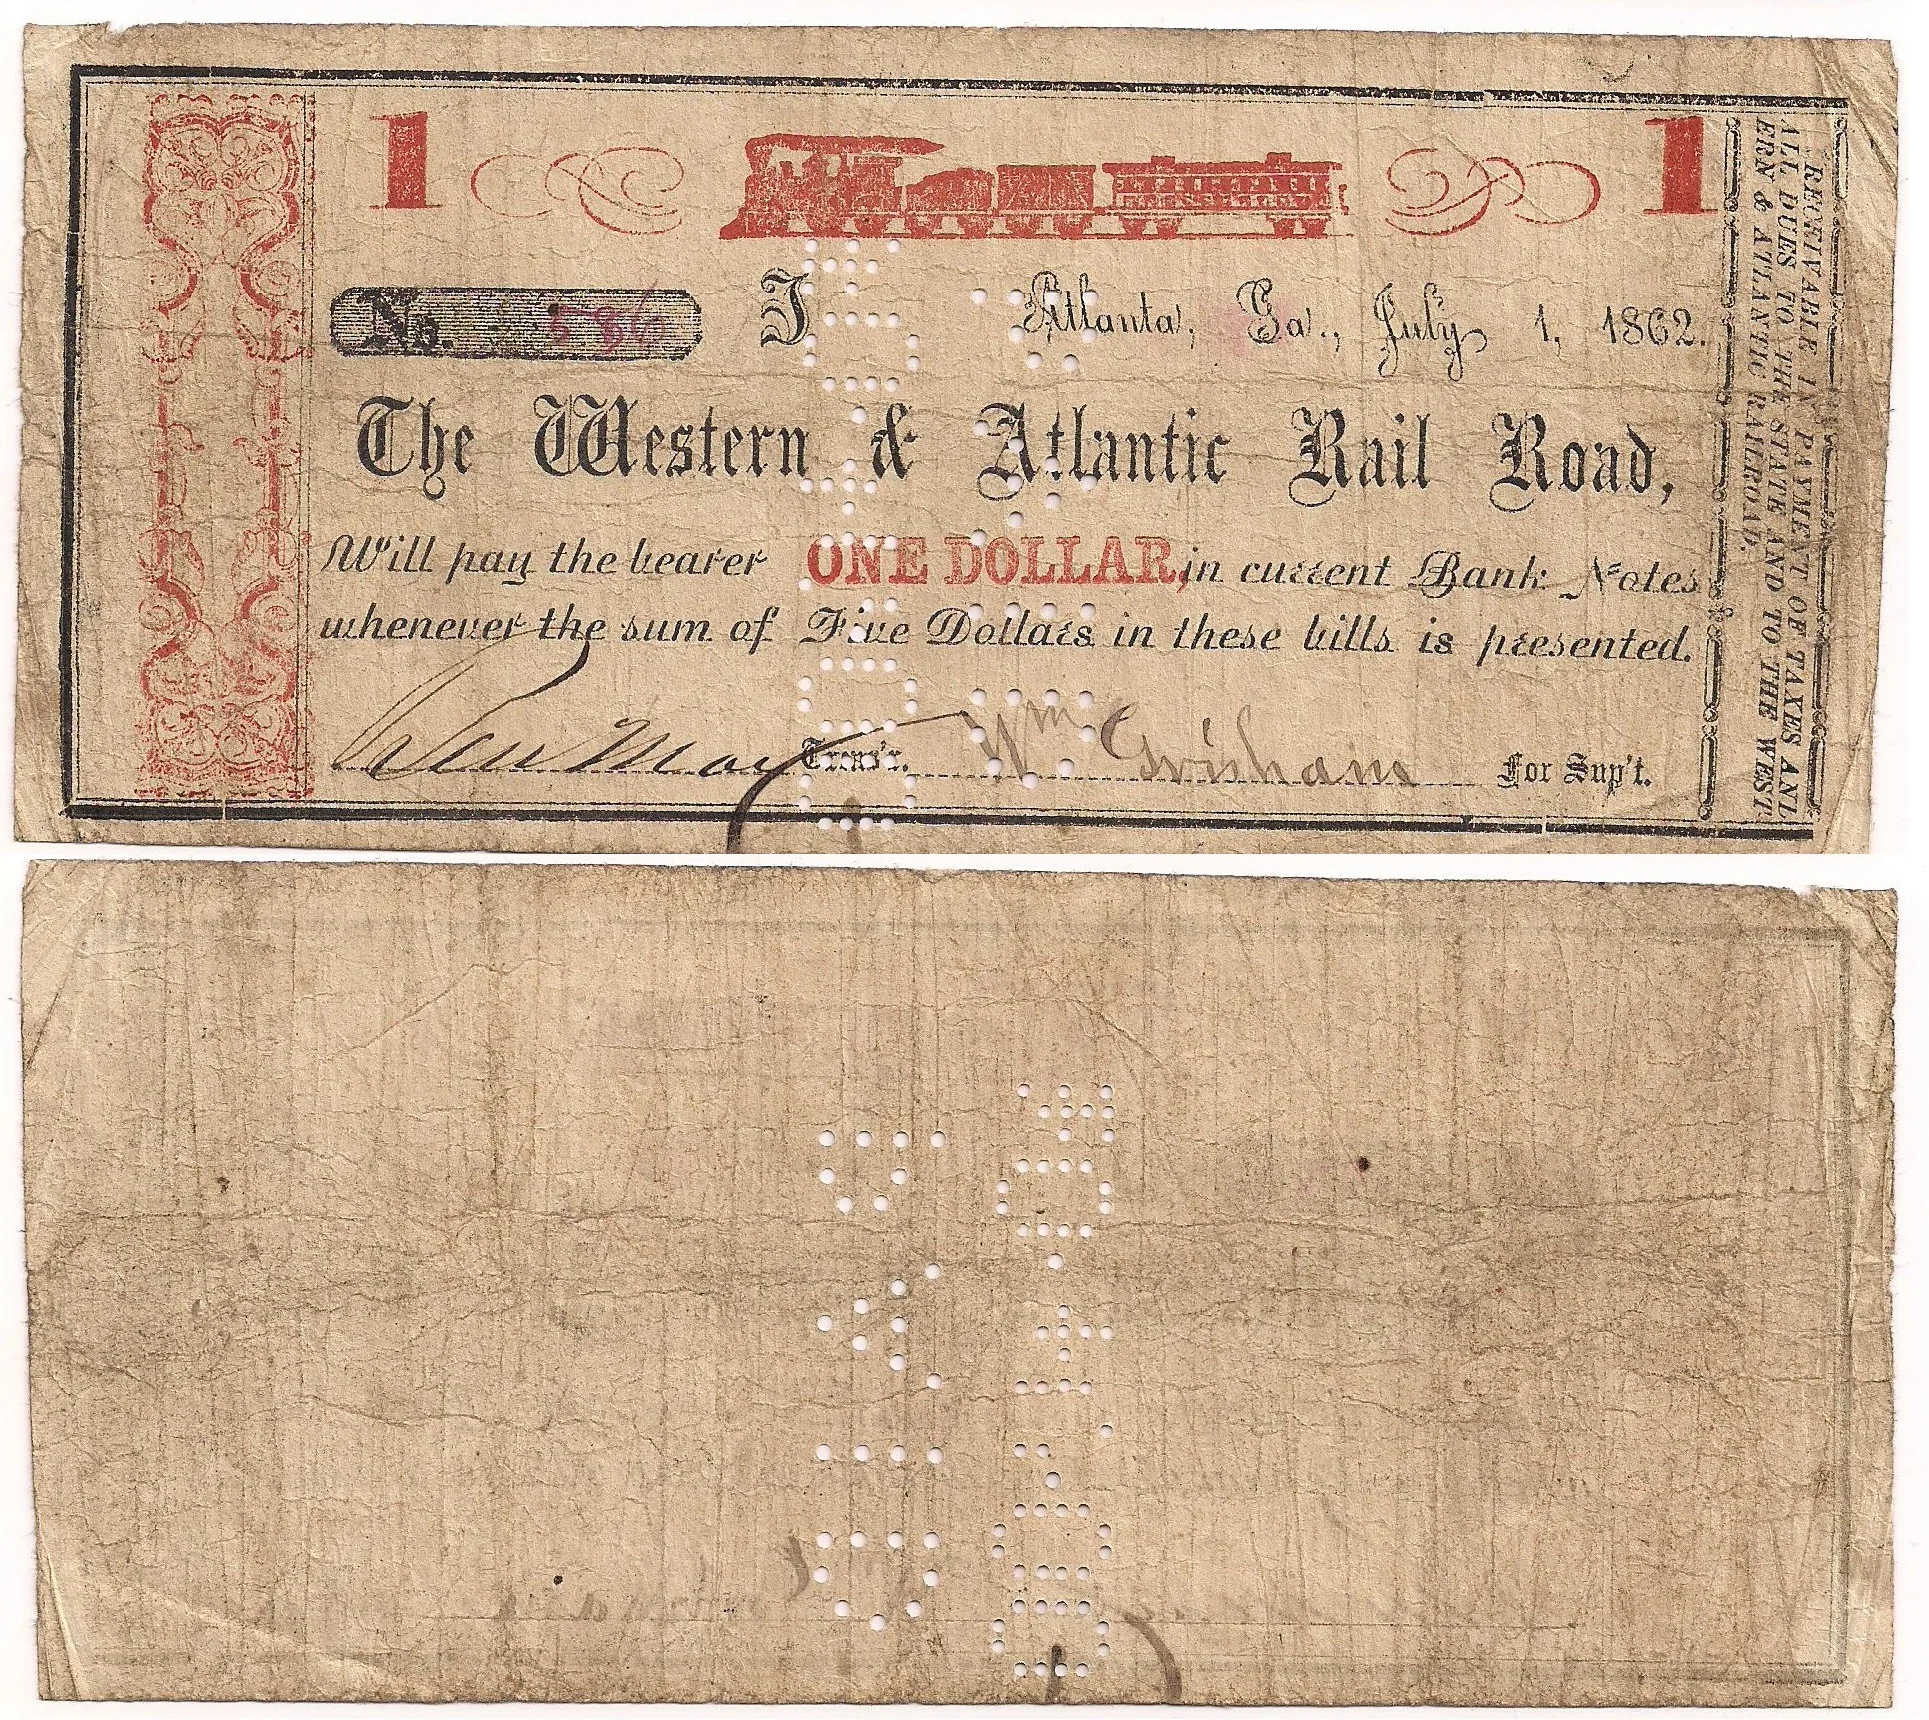 1 1
No. 586 J Atlanta, Ga., July 1, 1862.
The Western & Atlantic Rail Road,
Will pay the bearer ONE DOLLAR, in current Bank Notes
whenever the sum of Five Dollars in these bills is presented.
Ben May Treas'r. Wm Grisham For Sup't.
RECEIVABLE IN PAYMENT OF TAXES AND
ALL DUES TO THE STATE AND TO THE WEST
ERN & ATLANTIC RAILROAD.